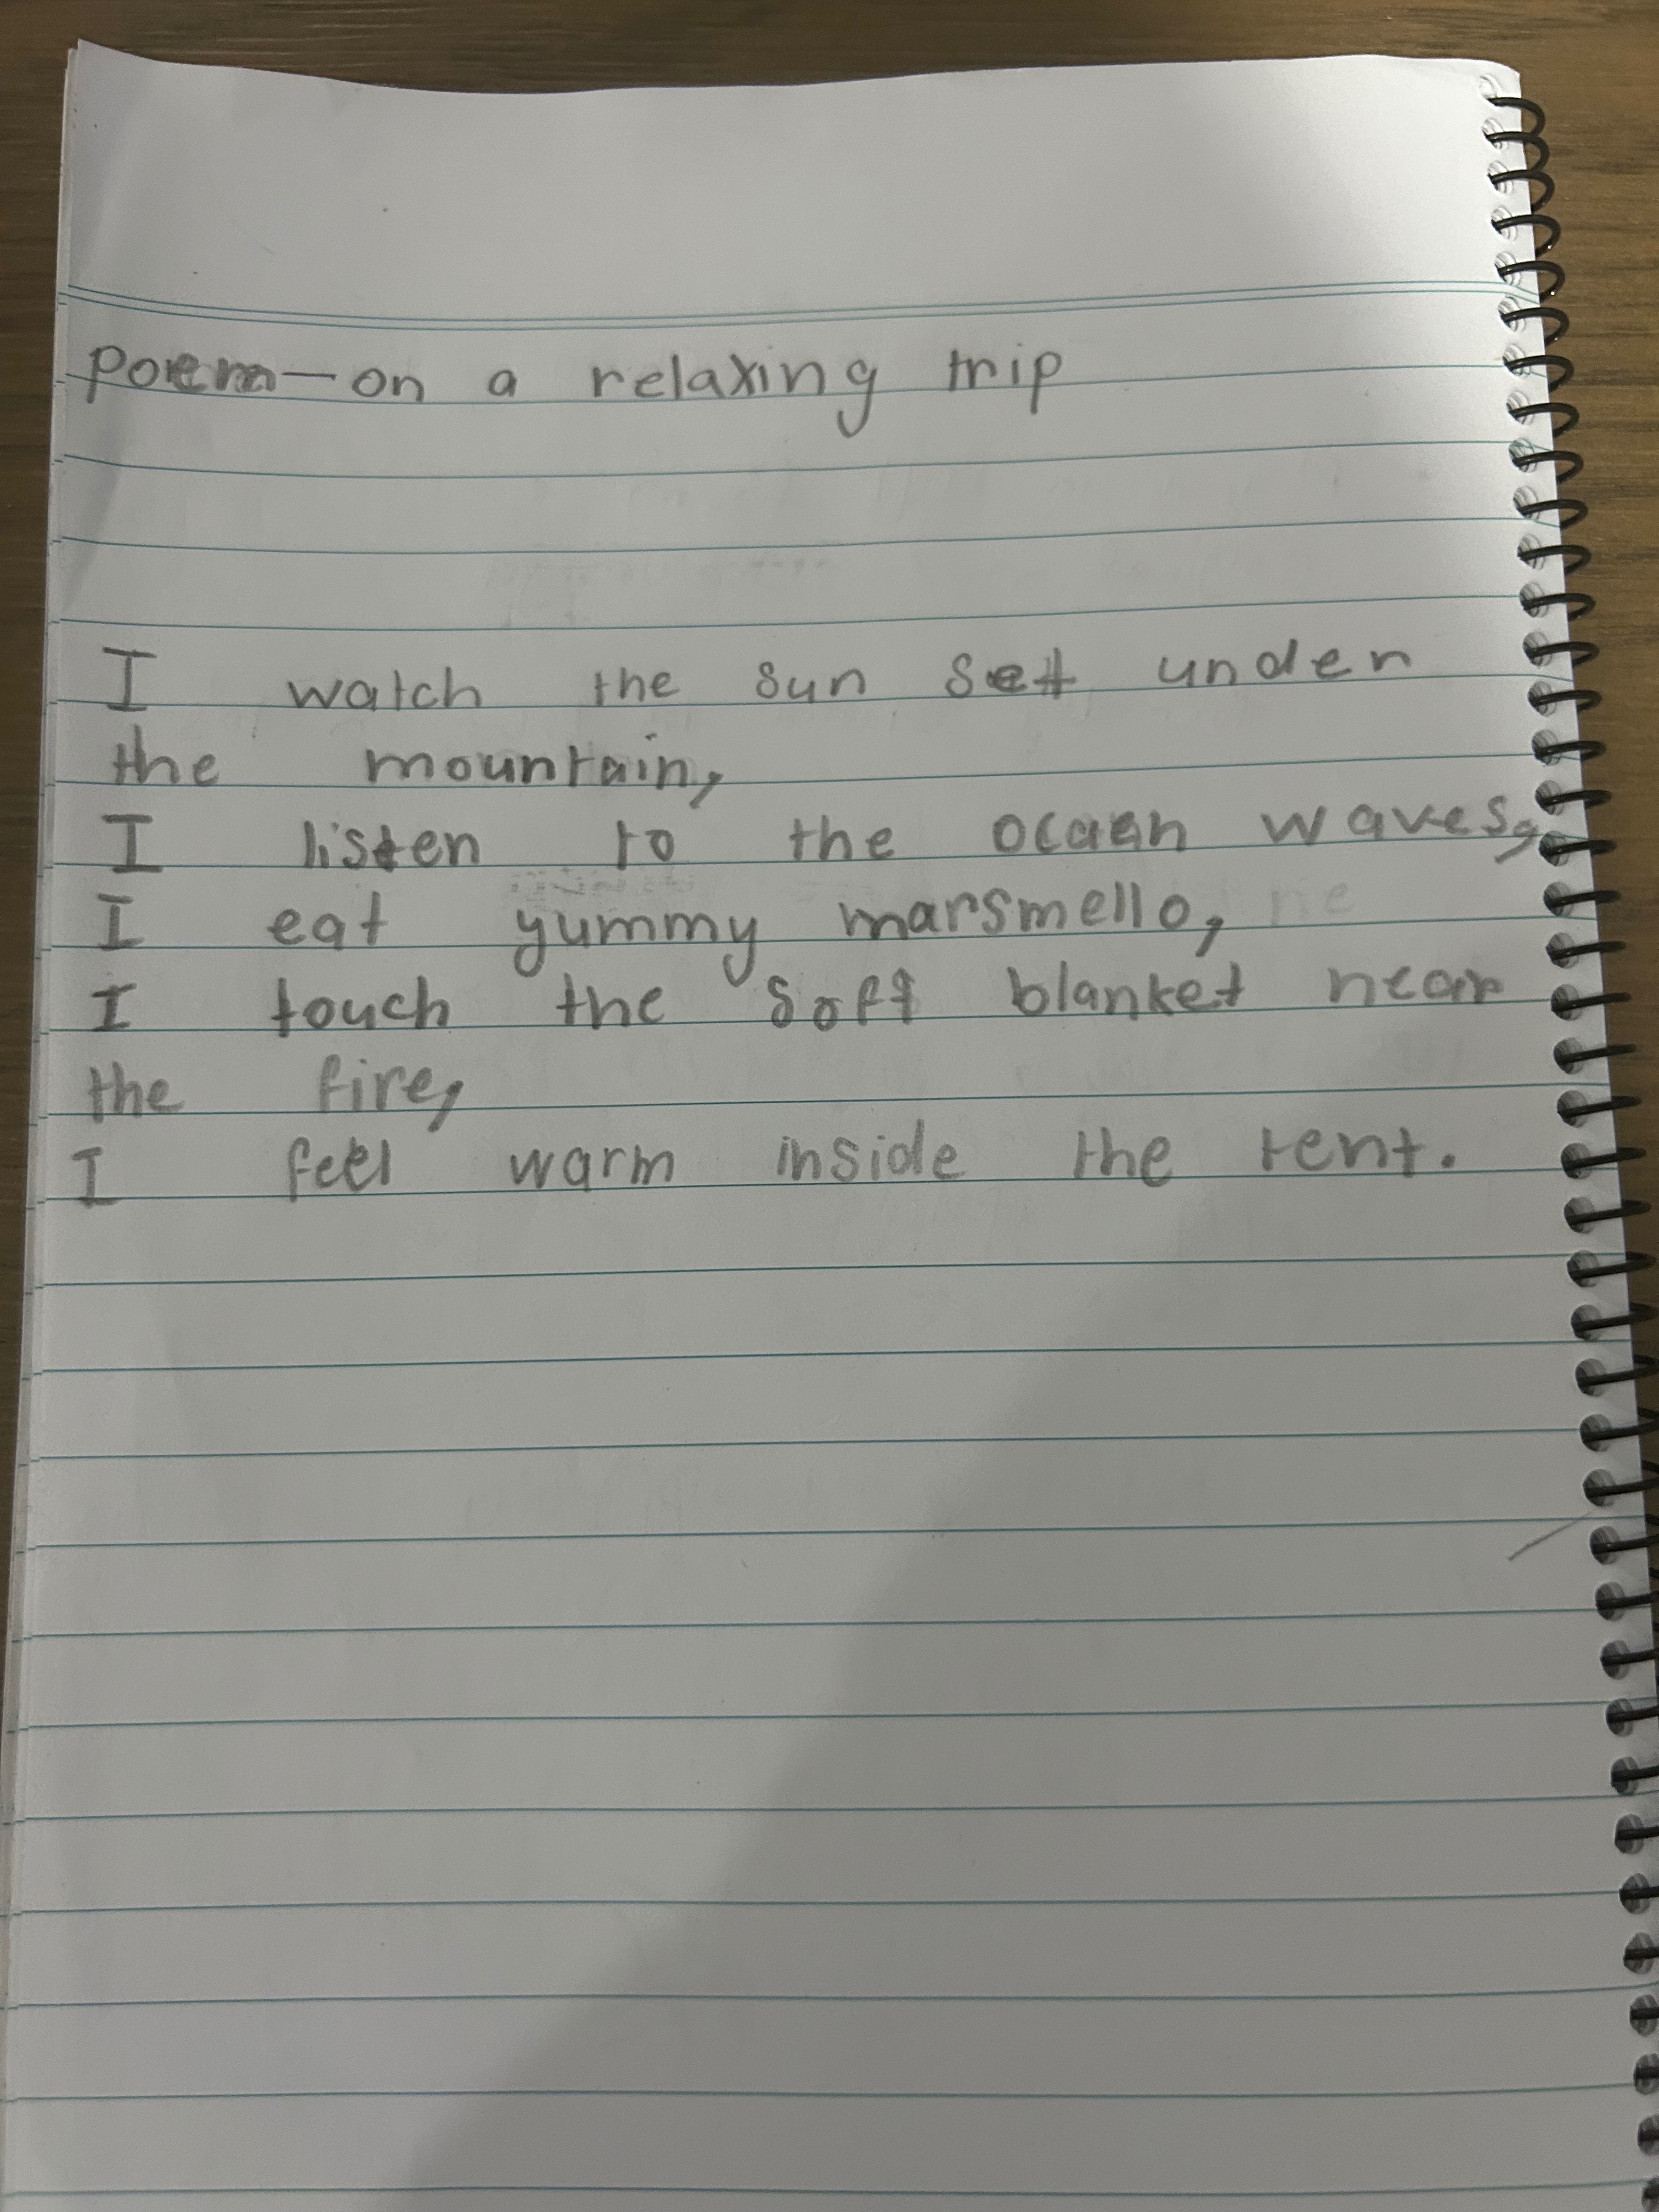 poem — on a relaxing trip
I watch the sun set under
the mountain,
I listen to the ocaen waves,
I eat yummy marsmello,
I touch the soft blanket near
the fire,
I feel warm inside the tent.